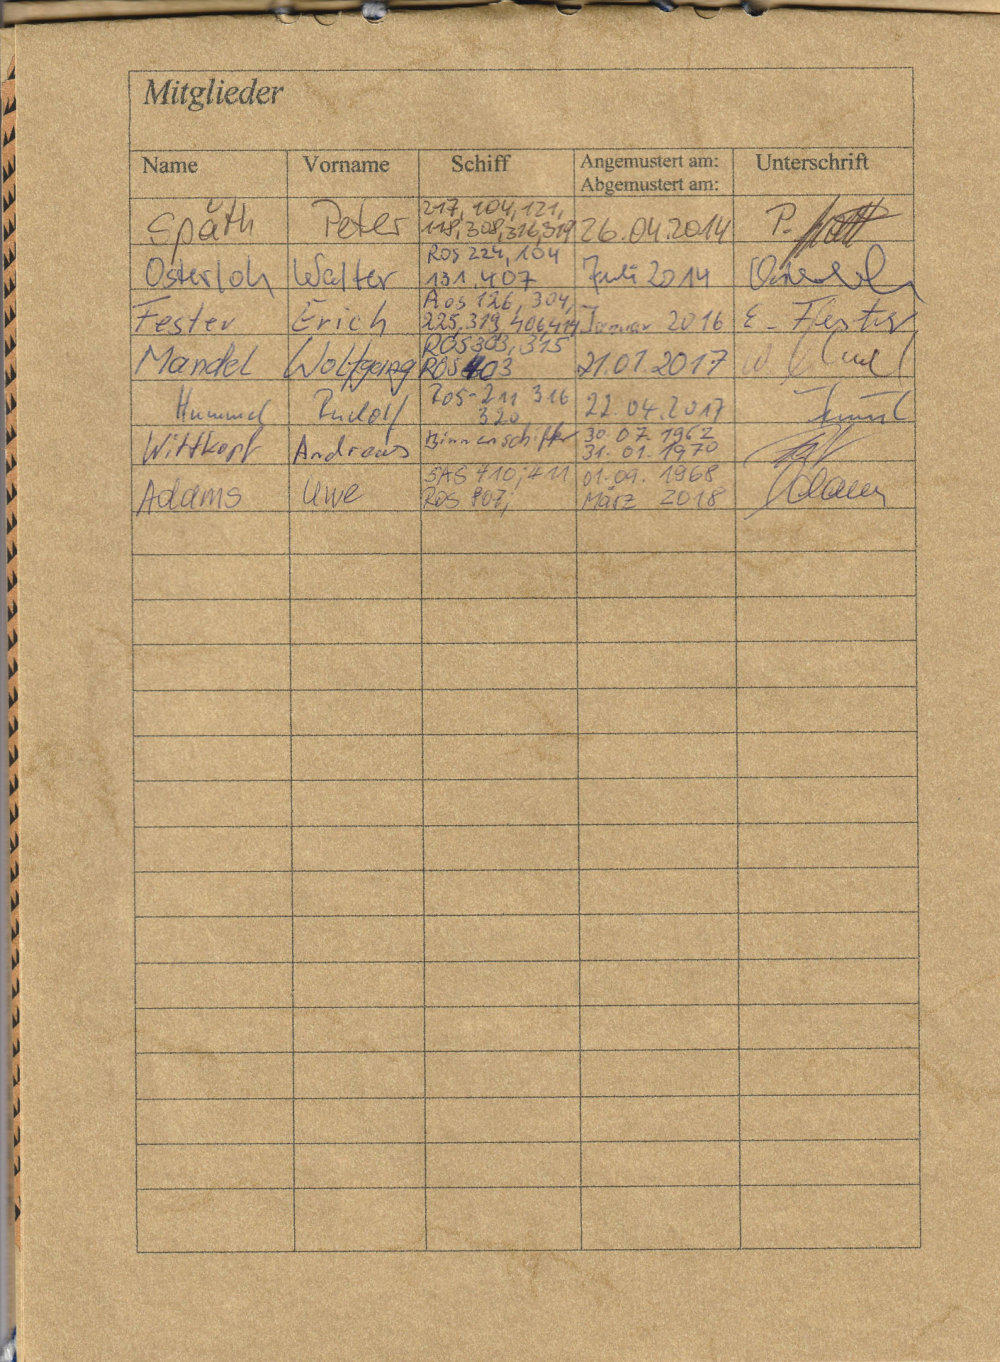 Mitglieder
Name Vorname Schiff Angemustert am: Unterschrift
Abgemustert am:
Späth Peter 217, 104, 121, 26.04.2014 P.
118, 308, 316, 319
Osterloh Walter ROS 224, 104 Juli 2014
131, 407
Fester Erich Ros 126, 304, Januar 2016 E. Fester
225, 319, 406, 414
Mandel Wolfgang ROS 303, 315 21.01.2017
ROS 403
Hummel Rudolf Ros-211 316 22.04.2017
320
Wittkopf Andreas Binnenschiffer 30.07.1962
31.01.1970
Adams Uwe SAS 410, 411 01.09.1968 Adams
ROS 807, März 2018